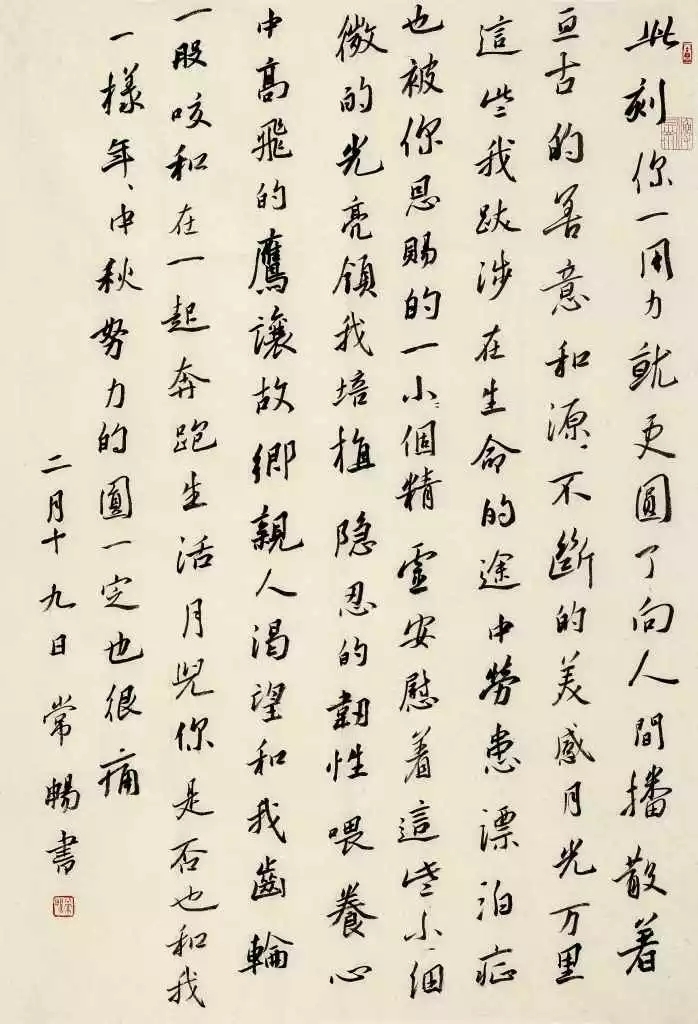 此刻你一用力就更圓了向人間播散着
亘古的善意和源、不斷的美感月光万里
這些我跋涉在生命的途中勞患漂泊症
也被你恩賜的一小、個精靈安慰着這些小、個
微的光亮領我培植隐忍的韌性喂養心
中高飛的鷹讓故鄉親人渴望和我齒輪
一般咬和在一起奔跑生活月兒你是否也和我
一樣年、中秋努力的圓一定也很痛
二月十九日常暢書